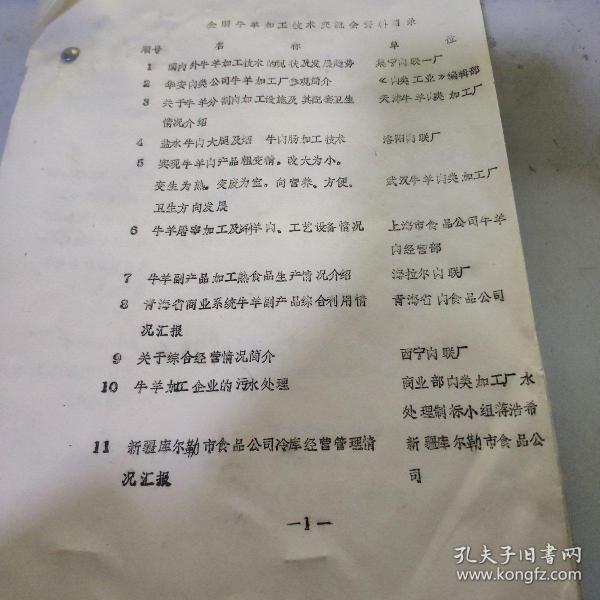 全国牛羊加工技术交流会资料目录
顺号 名 称 单 位
1 国内外牛羊加工技术的现状及发展趋势 集宁肉联一厂
2 华安肉类公司牛羊加工厂参观简介 《肉类工业》编辑部
3 关于牛羊分割肉加工设施及其配套卫生 天津牛羊肉类加工厂
情况介绍
4 盐水牛肉大腿及 牛肉肠加工技术 洛阳肉联厂
5 实现牛羊肉产品粗变精。改大为小。
变生为熟。变废为宝，向营养、方便、 武汉牛羊肉类加工厂
卫生方向发展
6 牛羊屠宰加工及涮羊肉、工艺设备情况 上海市食品公司牛羊
肉经营部
7 牛羊副产品加工熟食品生产情况介绍 海拉尔肉联厂
8 青海省商业系统牛羊副产品综合利用情 青海省肉食品公司
况汇报
9 关于综合经营情况简介 西宁肉联厂
10 牛羊加工企业的污水处理 商业部肉类加工厂水
处理制标小组蒋浩希
11 新疆库尔勒市食品公司冷库经营管理情 新疆库尔勒市食品公
况汇报 司
—1—
孔夫子旧书网
www.kongfz.com